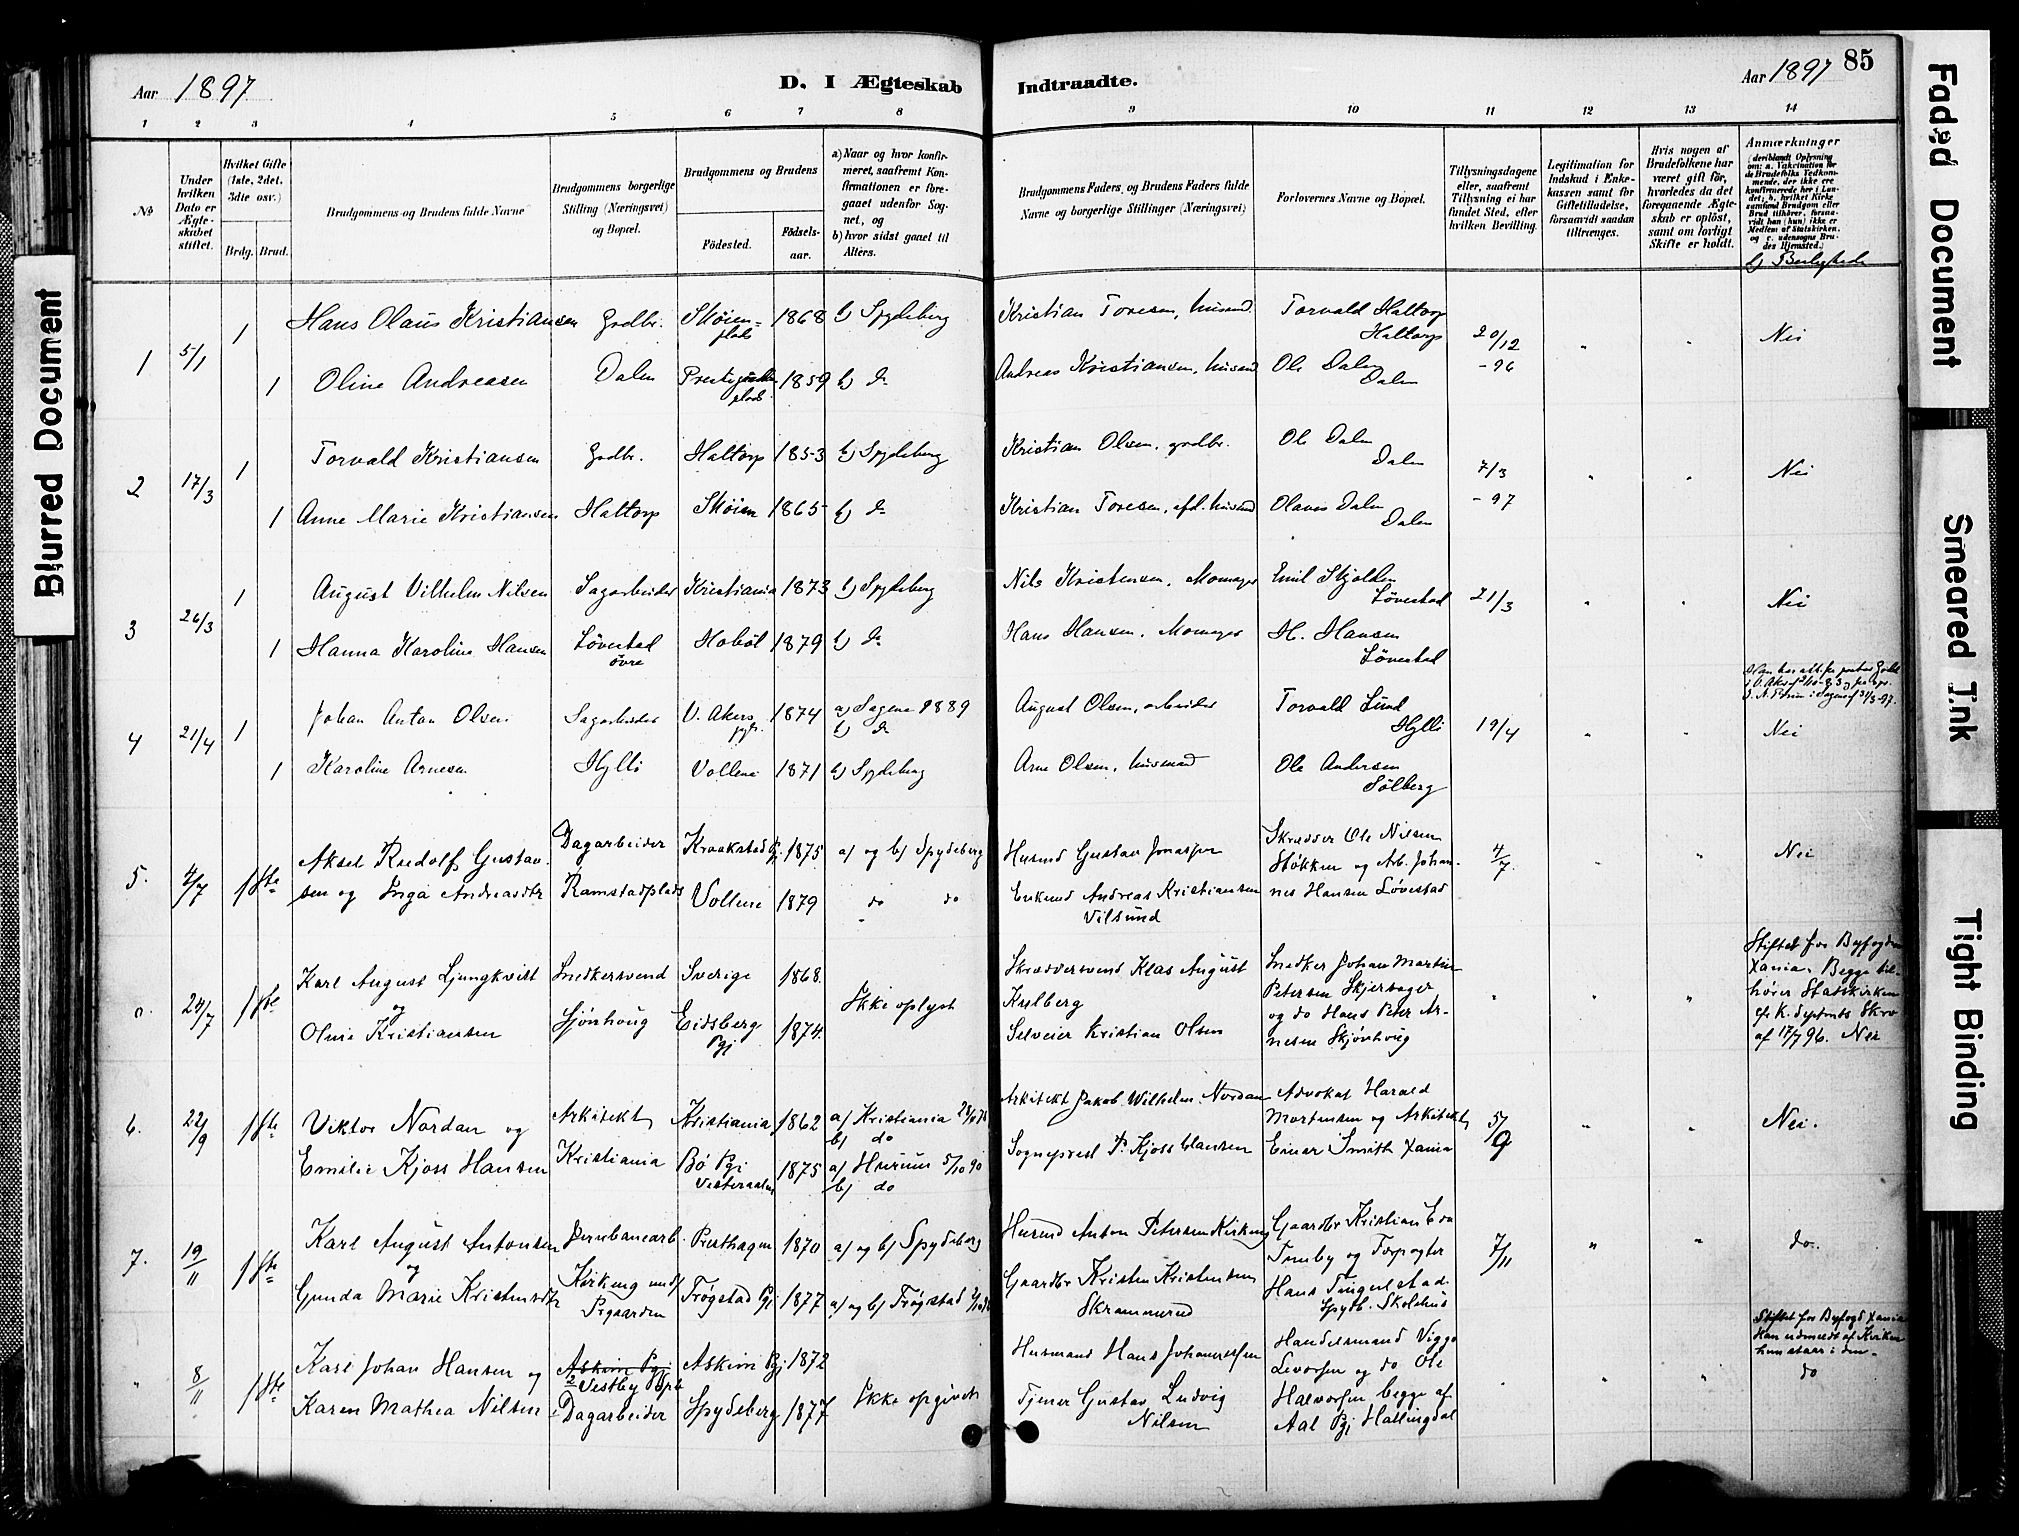 Aar 1897
D. I Ægteskab
Indtraadte.
Aar 1897
85
1 2 3 4 5 6 7 8 9 10 11 12 13 14
№
Under hvilken Dato er Ægteskabet stiftet.
Hvilket Gifte (1ste, 2det, 3die osv.)
Brdg. Brud.
Brudgommens og Brudens fulde Navne
Brudgommens borgerlige Stilling (Næringsvei) og Bopæl.
Brudgommens og Brudens
Födested.
Födselsaar.
a) Naar og hvor konfirmeret, saafremt Konfirmationen er foregaaet udenfor Sognet, og
b) hvor sidst gaaet til Alters.
Brudgommens Faders, og Brudens Faders fulde Navne og borgerlige Stillinger (Næringsvei)
Forlovernes Navne og Bopæl.
Tillysningsdagene eller, saafremt Tillysning ei har fundet Sted, efter hvilken Bevilling.
Legitimation for Indskud i Enkekassen samt for Giftetilladelse, forsaavidt saadan tiltrænges.
Hvis nogen af Brudefolkene har været gift før, hvorledes da det foregaaende Ægteskab er oplöst, samt om lovligt Skifte er holdt.
Anmærkninger
(deriblandt Oplysning om: a. Vakcination for de Brudefolks Vedkommende, der ikke ere konfirmerede her i Landet; b. hvilket Kirkesamfund Brudgom eller Brud tilhörer, forsaavidt han (hun) ikke er Medlem af Statskirken, og c. udensogns Brudes Hjemsted.)
1 5/1 1 Hans Olaus Kristiansen Grdbr. Skøiensplads 1868 b) Spydeberg Kristian Toresen, husmd. Torvald Haltorp Haltorp 20/12 " " Nei
1 Oline Andreasen Dalen 1859 b) do Andreas Kristiansen, husmd Ole Dalen Dalen - 96
2 17/3 1 Torvald Kristiansen Grdbr. Haltorp 1853 b) Spydeberg Kristian Olsen, grdbr. Ole Dalen Dalen 7/3 " " Nei
1 Anne Marie Kristiansen Haltorp Skøien 1865 b) do Kristian Toresen, afd. husmd Olaus Dalen Dalen - 97
3 26/3 1 August Vilhelm Nilsen Sagarbeider Kristiania 1873 b) Spydeberg Nils Kristensen, Løvestad 21/3 " " Nei
1 Hanna Karoline Hansen Løvestad øvre Hobøl 1879 b) do Hans Hansen, H. Hansen Løvestad
4 21/4 1 Johan Anton Olsen Sagarbeider V. Aker 1874 a) Sagene 1889 b) do August Olsen, arbeider Torvald Lund Hylli 19/4 " " Nei
1 Karoline Arnesen Hylli Vollene 1871 b) Spydeberg Arne Olsen, husmand Ole Andersen Solberg
5. 4/7 1 ste Aksel Rudolf Gustav- Dagarbeider Kraakstad Pgj 1875 a) og b) Spydeberg Husmd Gustav Skrædder Ole Nilsen 4/7. " " Nei
sen og Inga Andreasdtr Ramstadplads Vollene 1879 do do Enkemd Andreas Kristiansen Vilsund Støkken og Arb. Johannes Hansen Løvestad
24/7 1 ste Karl August Ljungkvist Snedkersvend Sverige 1868. Skræddersvend Klas August Snedker Johan Martin " " "
og Sjønhoug Eidsberg Pgj 1874. Ikke oplyst Petersen Skjersager
Oline Kristiansen Selveier Kristian Olsen og do Hans Peter Arnesen Skjønhoug
Stiftet for Byfogden Xania. Begge tilhører Statskirken af 17/7 96. Nei
6. 22/9 1 ste Viktor Nordan og Arkitekt Kristiania 1862 a) Kristiania b) do Arkitekt Jakob Wilhelm Nordan Advokat Harald 5/9 " " Nei.
Emilie Kjoss Hansen Kristiania Bø Pgj Vesteraalen 1875 a) Hurum 5/10 90 b) do Sogneprest P. Kjoss Hansen Mortensen og Arkitekt Einar Smith Xania
7. 19/11 1 ste Karl August Antonsen Jernbanearb. Presthagen 1870 a) og b) Spydeberg Husmd Anton Petersen Kirkeng Gaardbr Kristian 7/11 " " do.
og Kirkeng und/ Prgaarden
Gunda Marie Kristensdtr Trøgstad Pgj 1877 a) og b) Trøgstad Gaardbr Kristen Kristensen Skrammerud Hans Tingulstad Spydb. Skolehus
" 8/11 1 ste Karl Johan Hansen og Askim Pgj Askim Pgj 1872 Husmand Hans Johannessen Handelsmand Viggo " " "
Vestby
Karen Mathea Nilsen Dagarbeider Spydeberg 1877 Ikke opgivet Tjener Gustav Ludvig Nilsen Levorsen og do Ole Halvorsen begge af Aal Pgj Hallingdal
Stiftet for Byfogd Xania Han udmeldt af Kirken hun staar i den. do
Blurred Document
Faded Document
Smeared Ink
Tight Binding